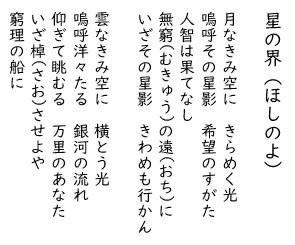 星の界(ほしのよ)
月なきみ空に　きらめく光
嗚呼その星影　希望のすがた
人智は果てなし
無窮(むきゅう)の遠(おち)に
いざその星影　きわめも行かん
雲なきみ空に　横とう光
嗚呼洋々たる　銀河の流れ
仰ぎて眺むる　万里のあなた
いざ棹(さお)させよや
窮理の船に